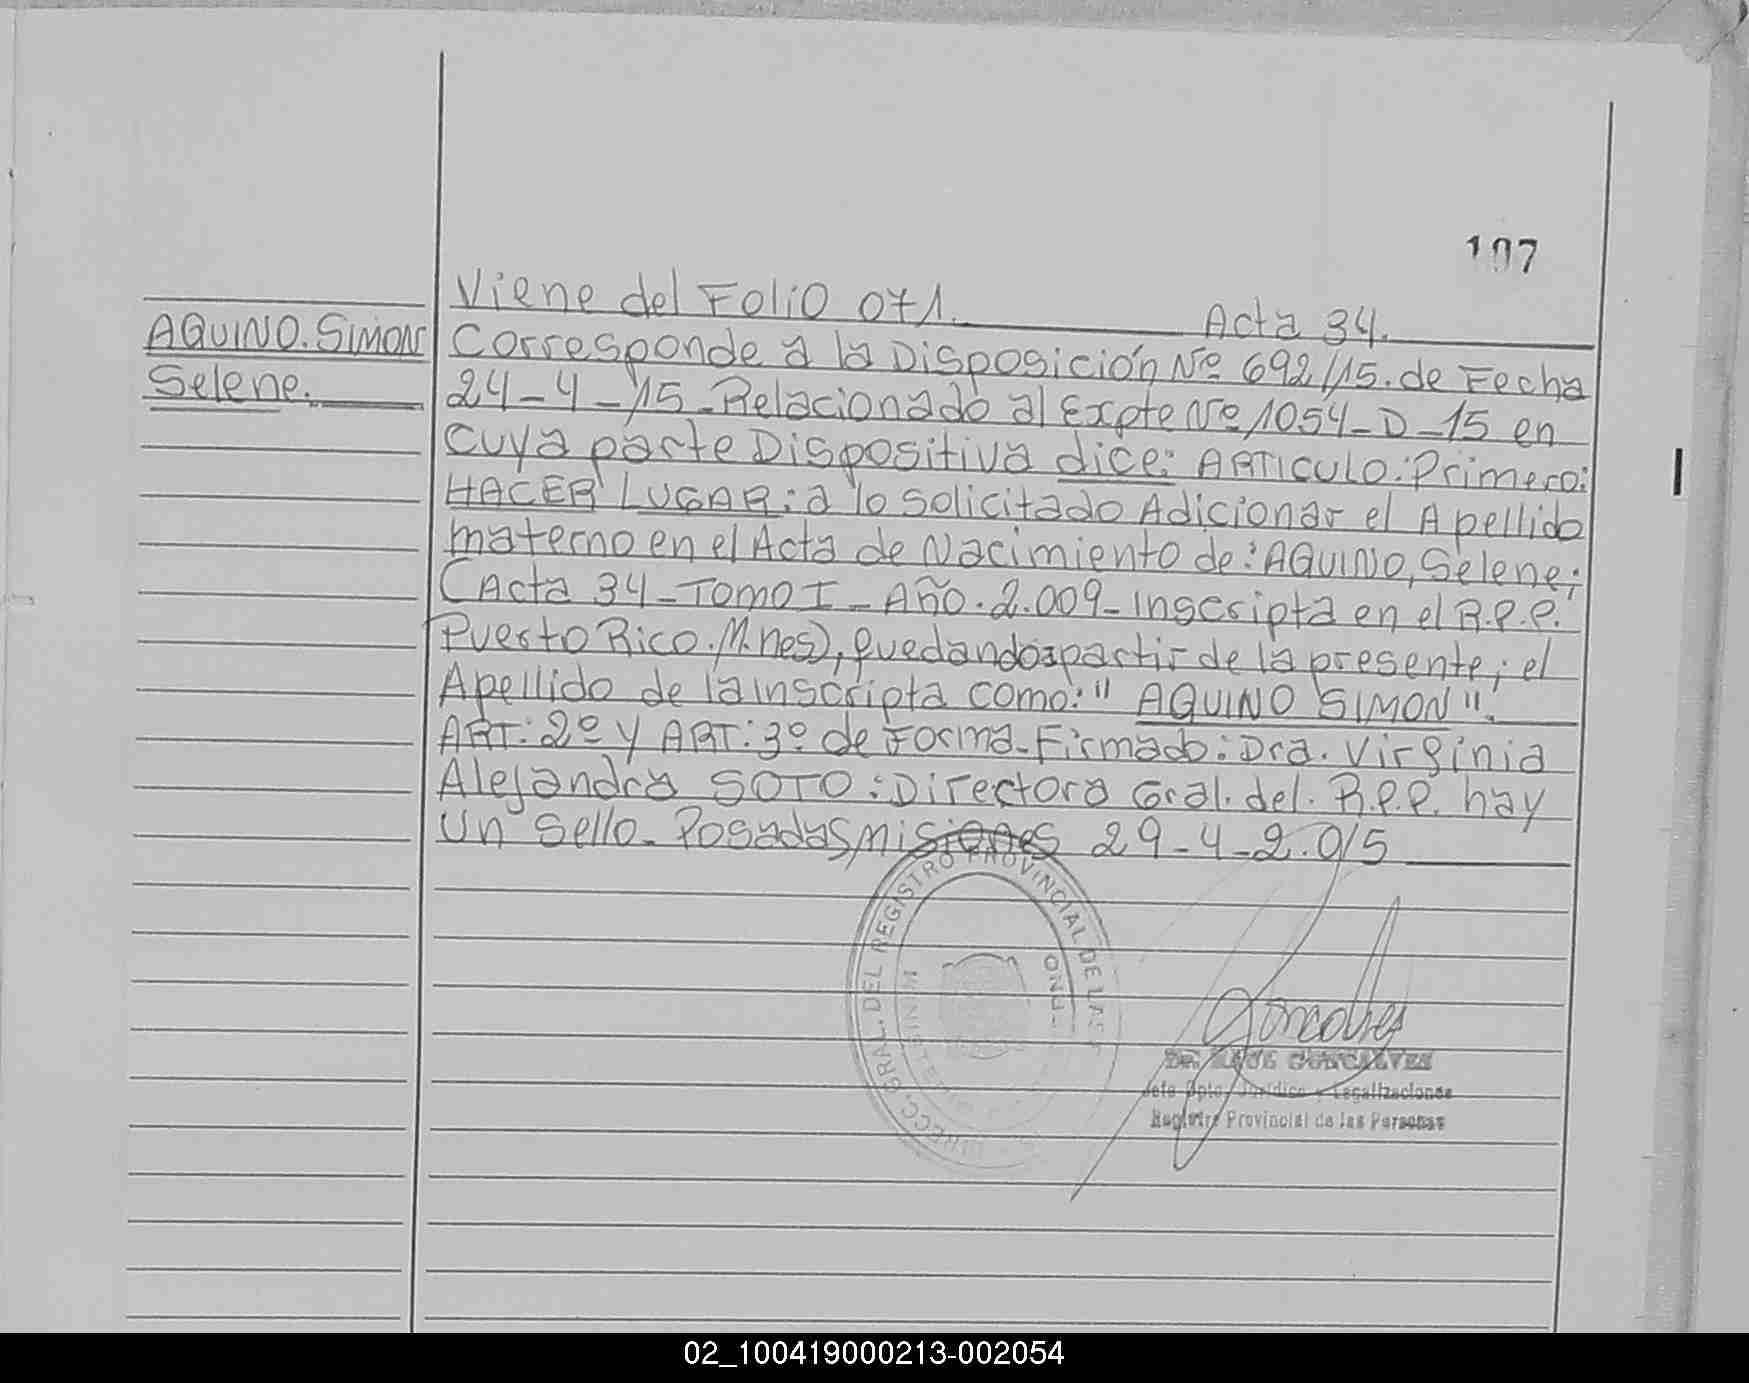 107
Viene del Folio 071. Acta 34.
AQUINO. SIMON
Selene.
Corresponde a la Disposición Nº 692/15. de Fecha
24-4-15_Relacionado al Expte Nº 1054_D_15 en
cuya parte Dispositiva dice: ARTICULO: Primero:
HACER LUGAR: a lo solicitado Adicionar el Apellido
materno en el Acta de Nacimiento de: AQUINO, Selene;
(Acta 34_TOMO I_Año. 2.009_Inscripta en el R.P.P.
Puerto Rico. M.nes), quedando a partir de la presente; el
Apellido de la inscripta como: " AQUINO SIMON".
ART: 2º y ART: 3º de Forma_Firmado: Dra. Virginia
Alejandra SOTO: Directora Gral. del. R.P.P. hay
un sello_Posadas, misiones 29_4_2.015
DIRECC. GRAL. DEL REGISTRO PROVINCIAL DE LAS
Goncalves
GONCALVES
Jefe Dpto. Jurídico y Legalizaciones
Registro Provincial de las Personas
02_100419000213-002054